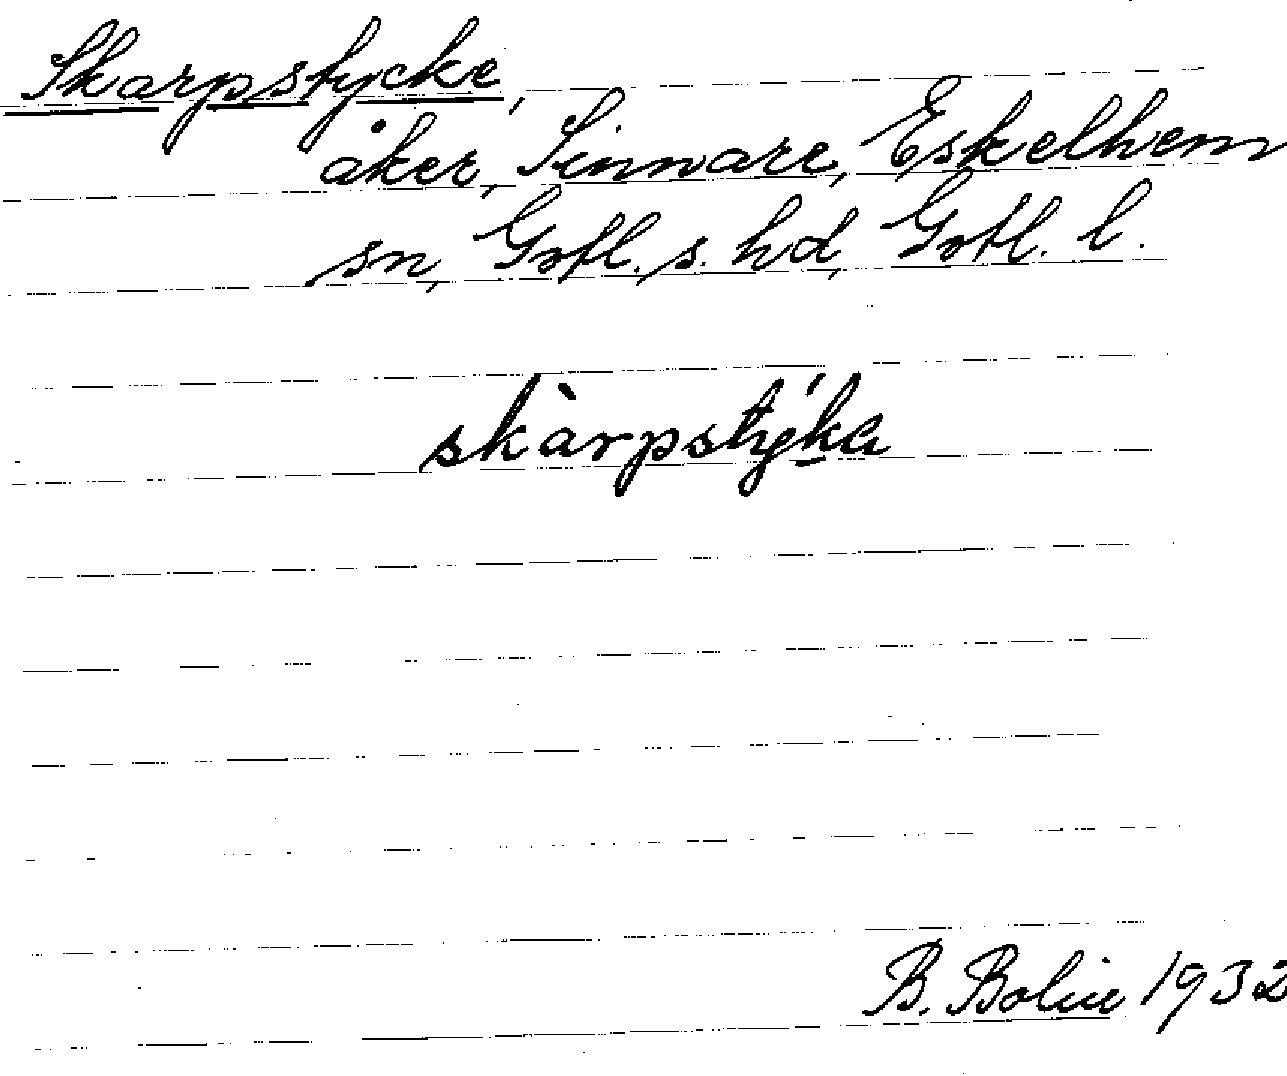 Skarpstycke,
åker, Sinnare, Eskelhem
sn, Gotl. s. hd, Gotl. l.
skàrpstýka
B. Bolin 1932